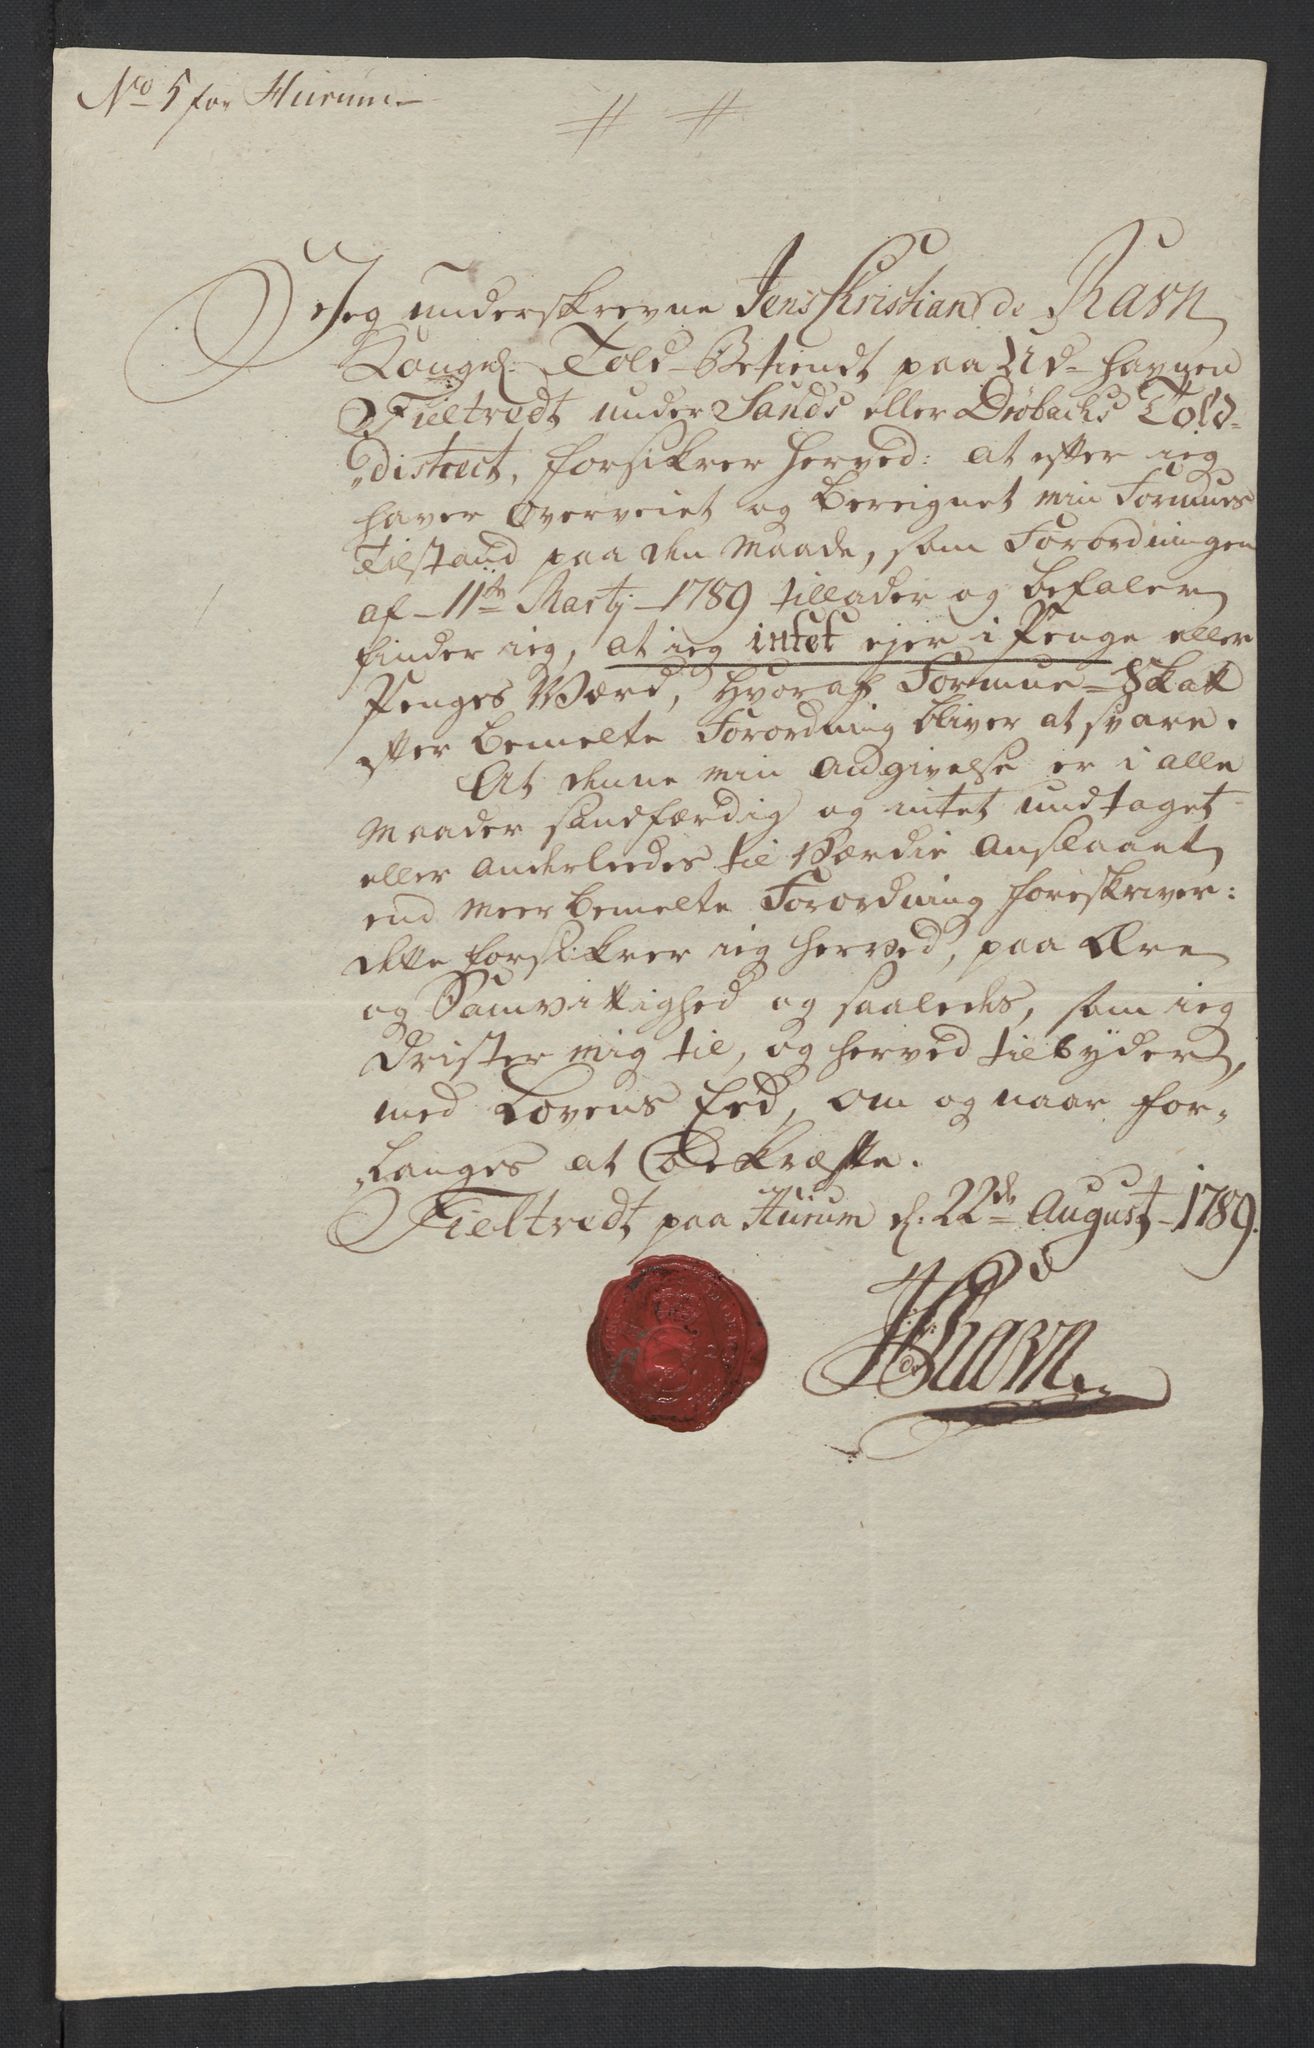 No 5 for Hurum
Jeg underskrevne Jens Christian de Ravn
Kongel: Told-Betiendt paa Ud-havnen
Fieltvedt under Sands eller Drøbachs Told-
district, forsikrer herved: at efter ieg
haver overveiet og bereignet min Formues
Tilstand paa den Maade, som Forordningen
af 11te Martj 1789 tillader og befaler,
finder ieg, at ieg intet ejer i Penge eller
Penges Værd, hvoraf Formue-Skatt
efter bemelte Forordning bliver at svare.
At denne min Angivelse er i alle
Maader sandfærdig og intet undtaget
eller anderleedes til Værdie anslaaet,
end meerbemelte Forordning foreskriver:
dette forsikrer ieg herved, paa Ære
og Samvittighed og saaledes, som ieg
drister mig til, og herved tilbyder,
med Lovens Eed, om og naar for-
langes at bekræfte.
Fieltvedt paa Hurum d: 22de August 1789.
JC de Ravn